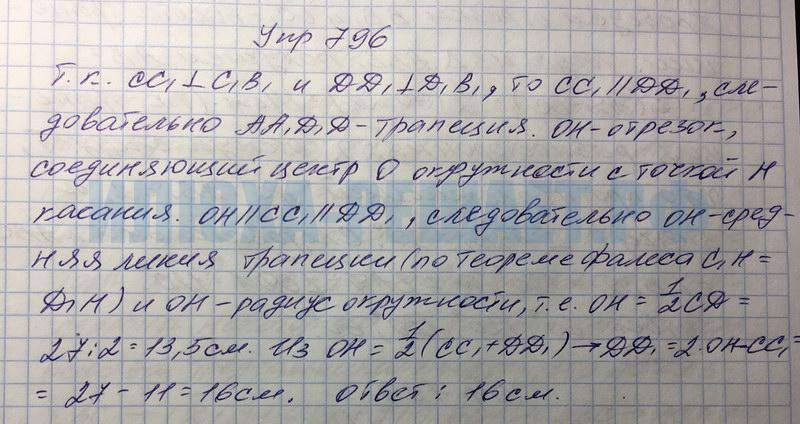 Упр 796
Т.к. CC₁⊥C₁B₁ и DD₁⊥D₁B₁, то CC₁∥DD₁, сле-
довательно AA₁D₁D-трапеция. OH-отрезок,
соединяющий центр O окружности с точкой H
касания. OH∥CC₁∥DD₁, следовательно OH-сред-
няя линия трапеции (по теореме Фалеса C₁H =
D₁H) и OH-радиус окружности, т.е. OH = 1/2 CD =
27:2 = 13,5см. Из OH = 1/2 (CC₁+DD₁) → DD₁ = 2·OH-CC₁ =
= 27 - 11 = 16см. Ответ: 16см.